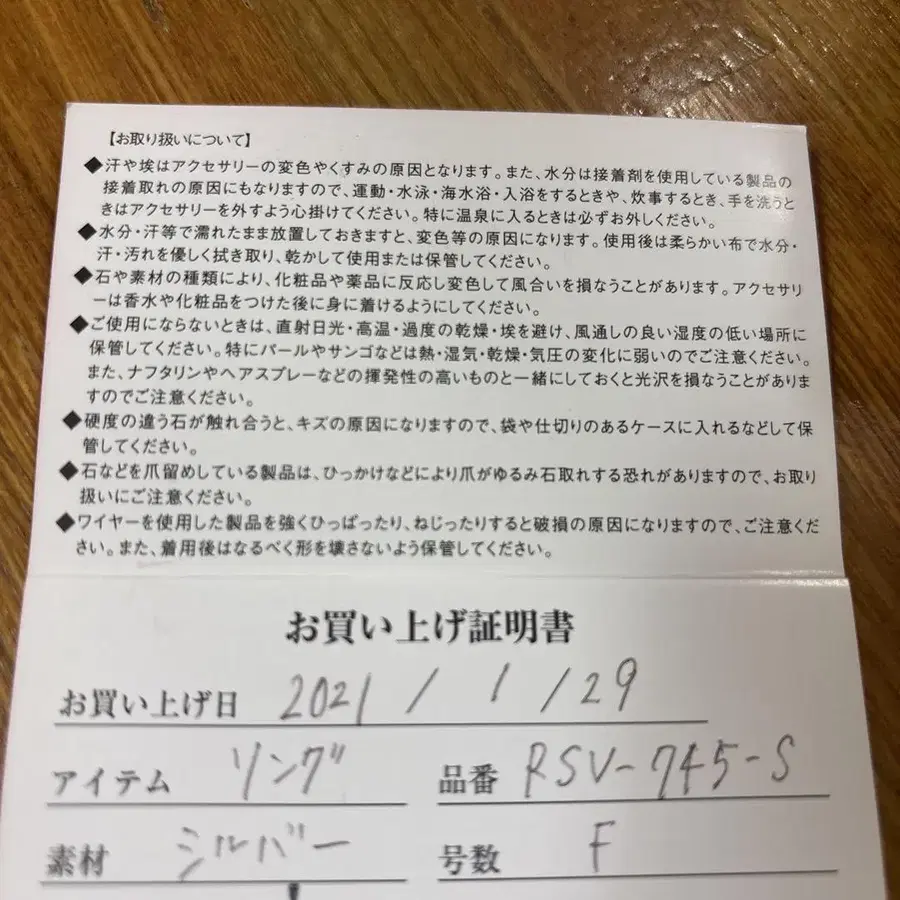 【お取り扱いについて】
◆汗や埃はアクセサリーの変色やくすみの原因となります。また、水分は接着剤を使用している製品の
接着取れの原因にもなりますので、運動・水泳・海水浴・入浴をするときや、炊事するとき、手を洗うと
きはアクセサリーを外すよう心掛けてください。特に温泉に入るときは必ずお外しください。
◆水分・汗等で濡れたまま放置しておきますと、変色等の原因になります。使用後は柔らかい布で水分・
汗・汚れを優しく拭き取り、乾かして使用または保管してください。
◆石や素材の種類により、化粧品や薬品に反応し変色して風合いを損なうことがあります。アクセサリ
ーは香水や化粧品をつけた後に身に着けるようにしてください。
◆ご使用にならないときは、直射日光・高温・過度の乾燥・埃を避け、風通しの良い湿度の低い場所に
保管してください。特にパールやサンゴなどは熱・湿気・乾燥・気圧の変化に弱いのでご注意ください。
また、ナフタリンやヘアスプレーなどの揮発性の高いものと一緒にしておくと光沢を損なうことがありま
すのでご注意ください。
◆硬度の違う石が触れ合うと、キズの原因になりますので、袋や仕切りのあるケースに入れるなどして保
管してください。
◆石などを爪留めしている製品は、ひっかけなどにより爪がゆるみ石取れする恐れがありますので、お取り
扱いにご注意ください。
◆ワイヤーを使用した製品を強くひっぱったり、ねじったりすると破損の原因になりますので、ご注意くだ
さい。また、着用後はなるべく形を壊さないよう保管してください。
お買い上げ証明書
お買い上げ日 2021 / 1 / 29
アイテム リング 品番 RSV-745-S
素材 シルバー 号数 F